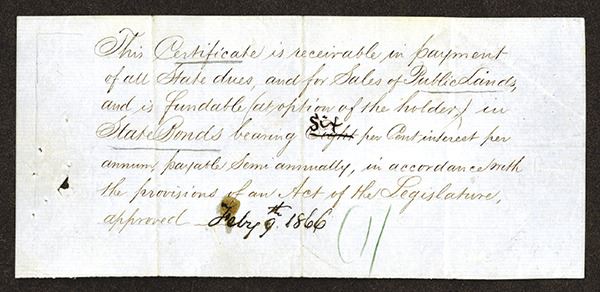 This Certificate is receivable in payment
of all State dues, and for Sales of Public Lands,
and is fundable (at option of the holder,) in
State Bonds bearing Six Eight per Cent interest per
annum, payable Semi annually, in accordance with
the provisions of an Act of the Legislature,
approved Feby 9th 1866